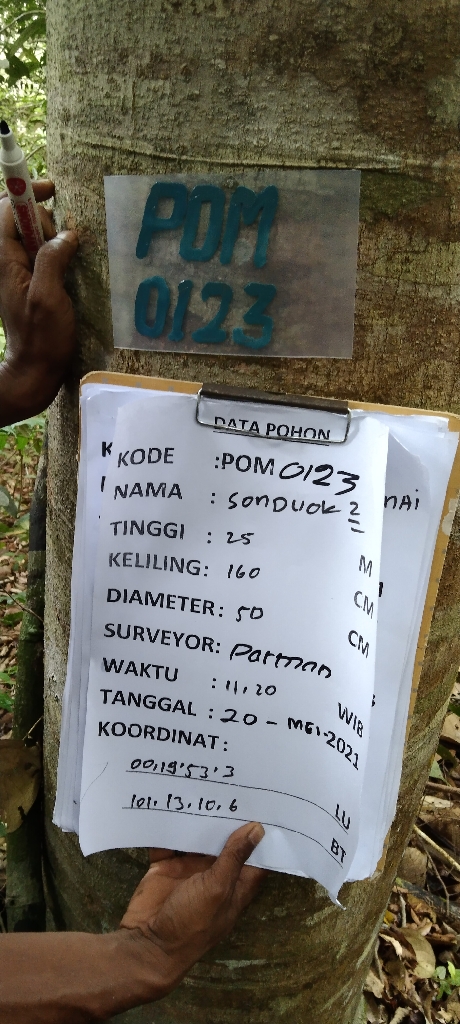 POM
0123
DATA POHON
KODE :POM 0123
NAMA : SONDUOK 2
TINGGI : 25 M
KELILING: 160 CM
DIAMETER: 50 CM
SURVEYOR: Parman
WAKTU : 11.20 WIB
TANGGAL : 20 - MEI-2021
KOORDINAT:
00.19'53.3 LU
101.13.10.6 BT